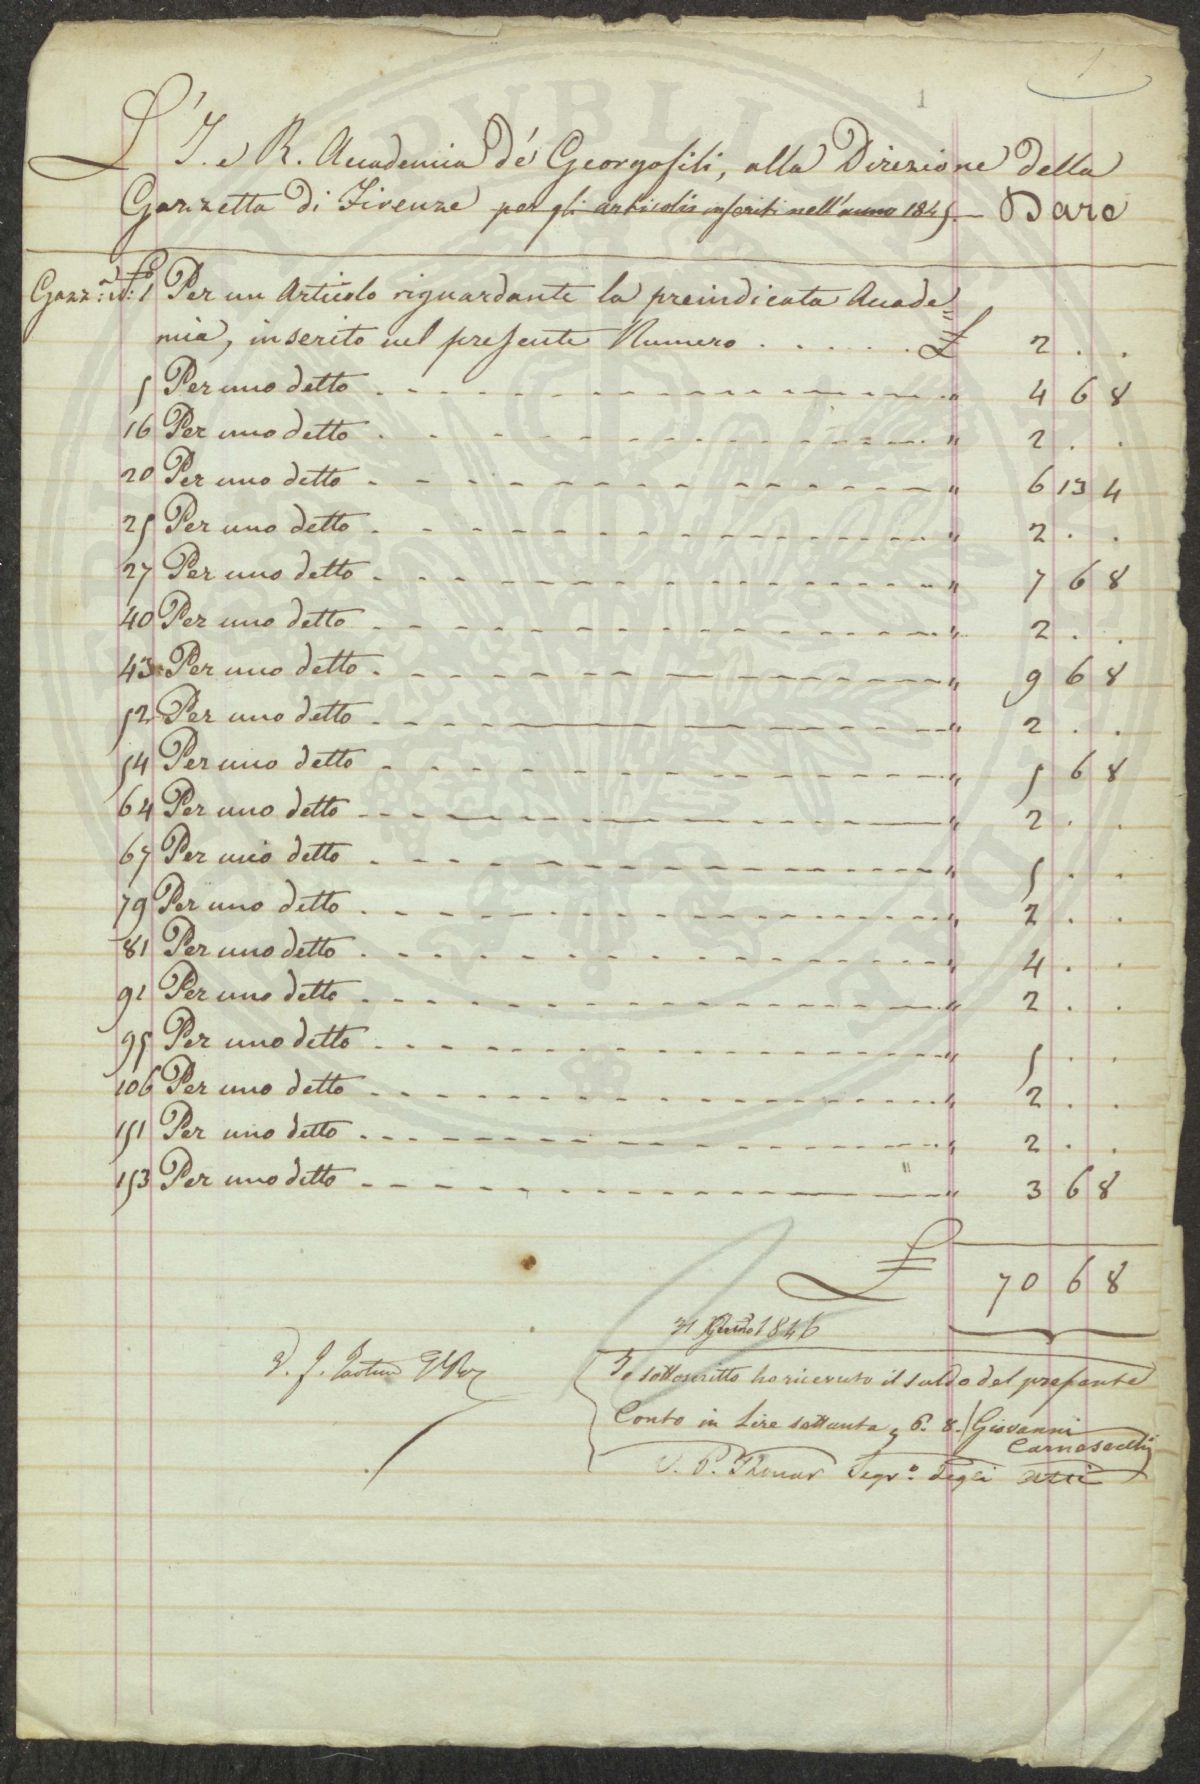 1
1
L'I. e R. Accademia de' Georgofili, alla Direzione della
Gazzetta di Firenze per gli articoli inseriti nell'anno 1845. Dare
Gazz:a No: 1 Per un Articolo riguardante la preindicata Accade
mia, inserito nel presente Numero . . . . . . £ 2 . .
5 Per uno detto " 4 6 8
16 Per uno detto " 2 . .
20 Per uno detto " 6 13 4
25 Per uno detto " 2 . .
27 Per uno detto " 7 6 8
40 Per uno detto " 2 . .
43 Per uno detto " 9 6 8
52 Per uno detto " 2 . .
54 Per uno detto " 5 6 8
64 Per uno detto " 2 . .
67 Per uno detto " 5 . .
79 Per uno detto " 2 . .
81 Per uno detto " 4 . .
91 Per uno detto " 2 . .
95 Per uno detto " 5 . .
106 Per uno detto " 2 . .
151 Per uno detto " 2 . .
153 Per uno detto " 3 6 8
£ 70 6 8
31 1846
Io sottoscritto ho ricevuto il saldo del presente
Conto in Lire settanta, 6. 8. Giovanni
Carnesecchi
V. P. Thouar Segr.o degli Atti